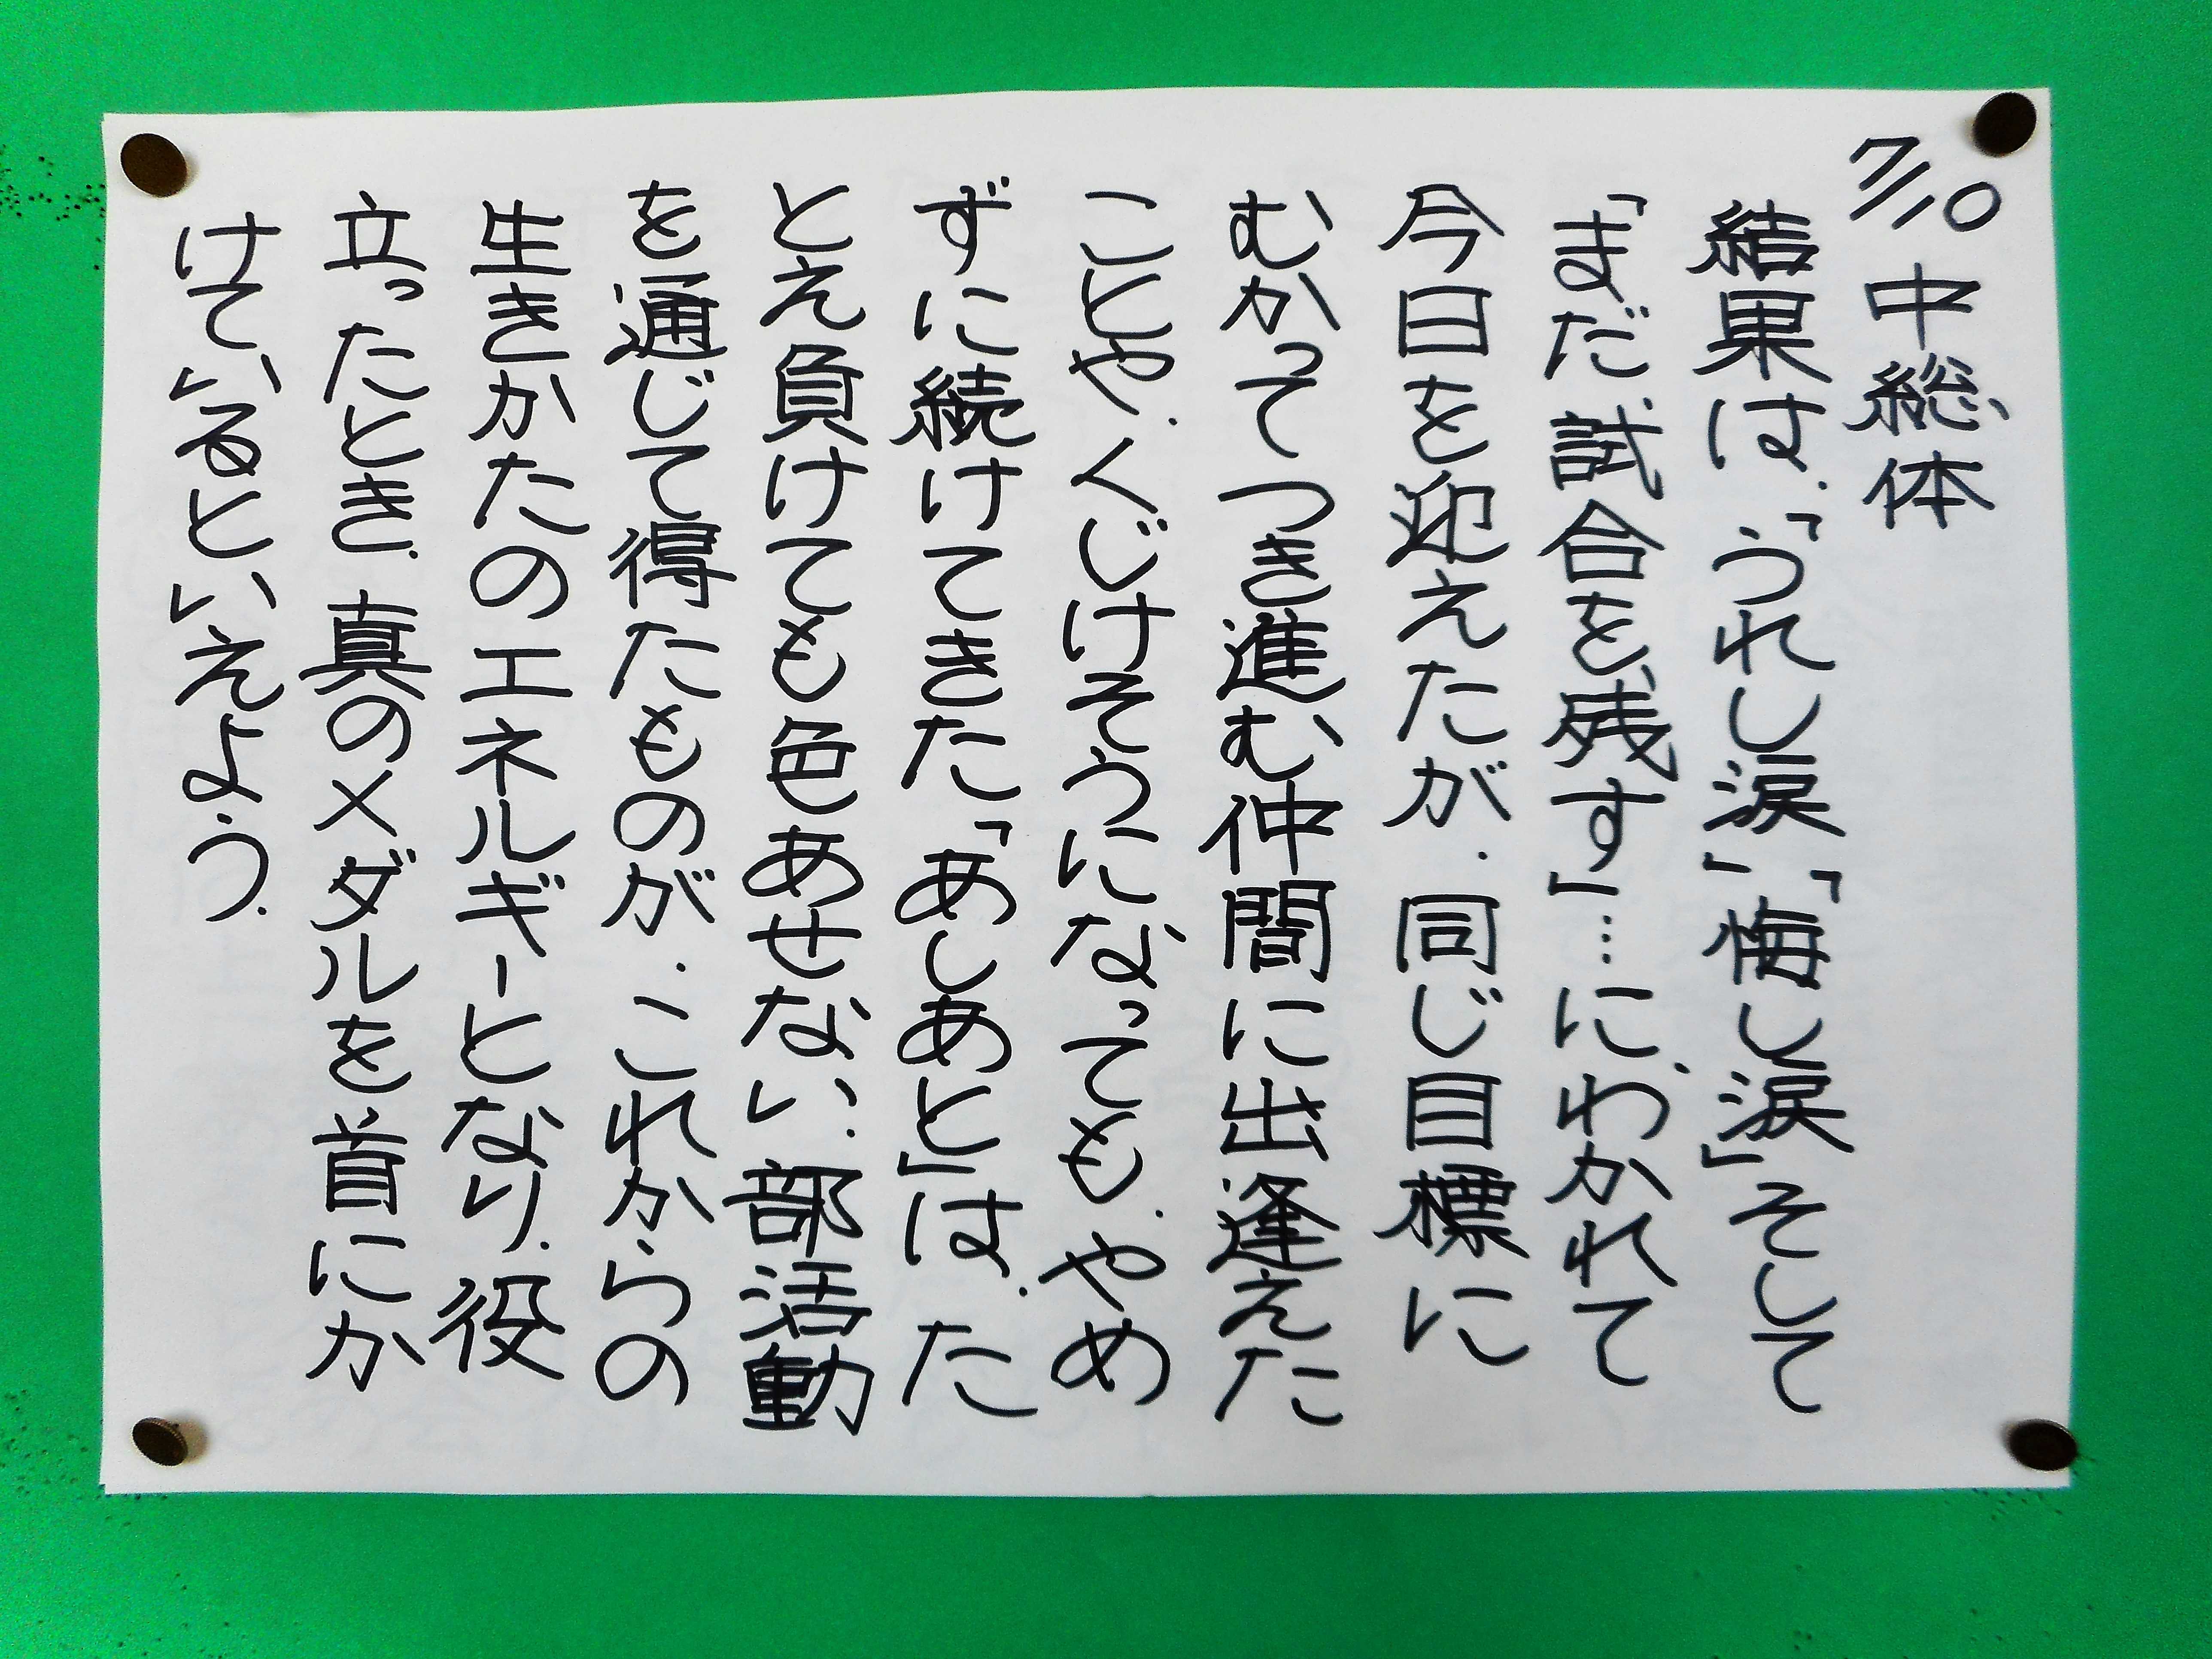 7/10 中総体
結果は、「うれし涙」「悔し涙」そして
「まだ試合を残す」…に、わかれて
今日を迎えたが、同じ目標に
むかってつき進む仲間に出逢えた
ことや、くじけそうになっても、やめ
ずに続けてきた「あしあと」は、た
とえ負けても色あせない、部活動
を通じて得たものが、これからの
生きかたのエネルギーとなり、役
立ったとき、真のメダルを首にか
けているといえよう。